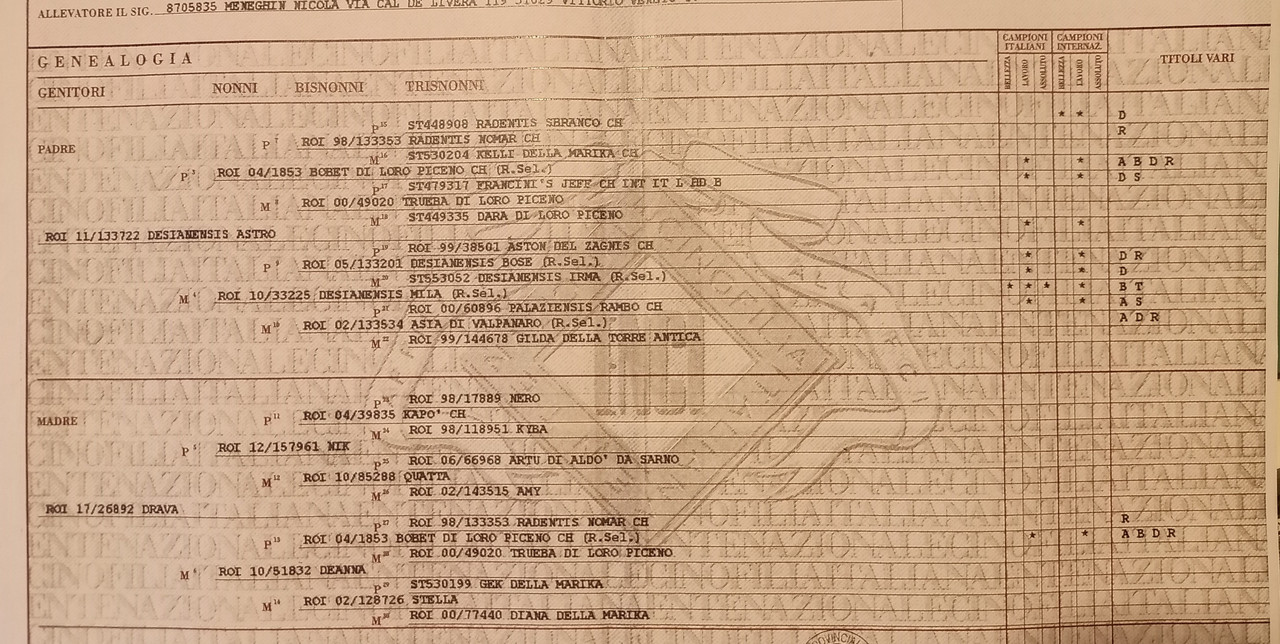 ALLEVATORE IL SIG. 8705835 MENEGHIN NICOLA VIA CAL DE LIVERA 119 31029 VITTORIO VENETO
GENEALOGIA
CAMPIONI ITALIANI
CAMPIONI INTERNAZ.
TITOLI VARI
BELLEZZA LAVORO ASSOLUTO BELLEZZA LAVORO ASSOLUTO
GENITORI NONNI BISNONNI TRISNONNI
P 15 ST448908 RADENTIS SBRANCO CH * * D
P 7 ROI 98/133353 RADENTIS NOMAR CH R
PADRE M 16 ST530204 KELLI DELLA MARIKA CH
P 3 ROI 04/1853 BOBET DI LORO PICENO CH (R.Sel.) * * A B D R
P 17 ST479317 FRANCINI'S JEFF CH INT IT L HD B * * D S
M 8 ROI 00/49020 TRUEBA DI LORO PICENO
M 18 ST449335 DARA DI LORO PICENO
ROI 11/133722 DESIANENSIS ASTRO * *
P 19 ROI 99/38501 ASTON DEL ZAGNIS CH
P 9 ROI 05/133201 DESIANENSIS BOSE (R.Sel.) * * D R
M 20 ST553052 DESIANENSIS IRMA (R.Sel.) * * D
M 4 ROI 10/33225 DESIANENSIS MILA (R.Sel.) * * * * B T
P 21 ROI 00/60896 PALAZIENSIS RAMBO CH * * A S
M 10 ROI 02/133534 ASIA DI VALPANARO (R.Sel.) A D R
M 22 ROI 99/144678 GILDA DELLA TORRE ANTICA
P 23 ROI 98/17889 NERO
MADRE P 11 ROI 04/39835 KAPO' CH
M 24 ROI 98/118951 KYBA
P 5 ROI 12/157961 NIK
P 25 ROI 06/66968 ARTU DI ALDO' DA SARNO
M 12 ROI 10/85288 QUATTA
M 26 ROI 02/143515 AMY
ROI 17/26892 DRAVA
P 27 ROI 98/133353 RADENTIS NOMAR CH R
P 13 ROI 04/1853 BOBET DI LORO PICENO CH (R.Sel.) * * A B D R
M 28 ROI 00/49020 TRUEBA DI LORO PICENO
M 6 ROI 10/51832 DEANNA
P 29 ST530199 GEK DELLA MARIKA
M 14 ROI 02/128726 STELLA
M 30 ROI 00/77440 DIANA DELLA MARIKA